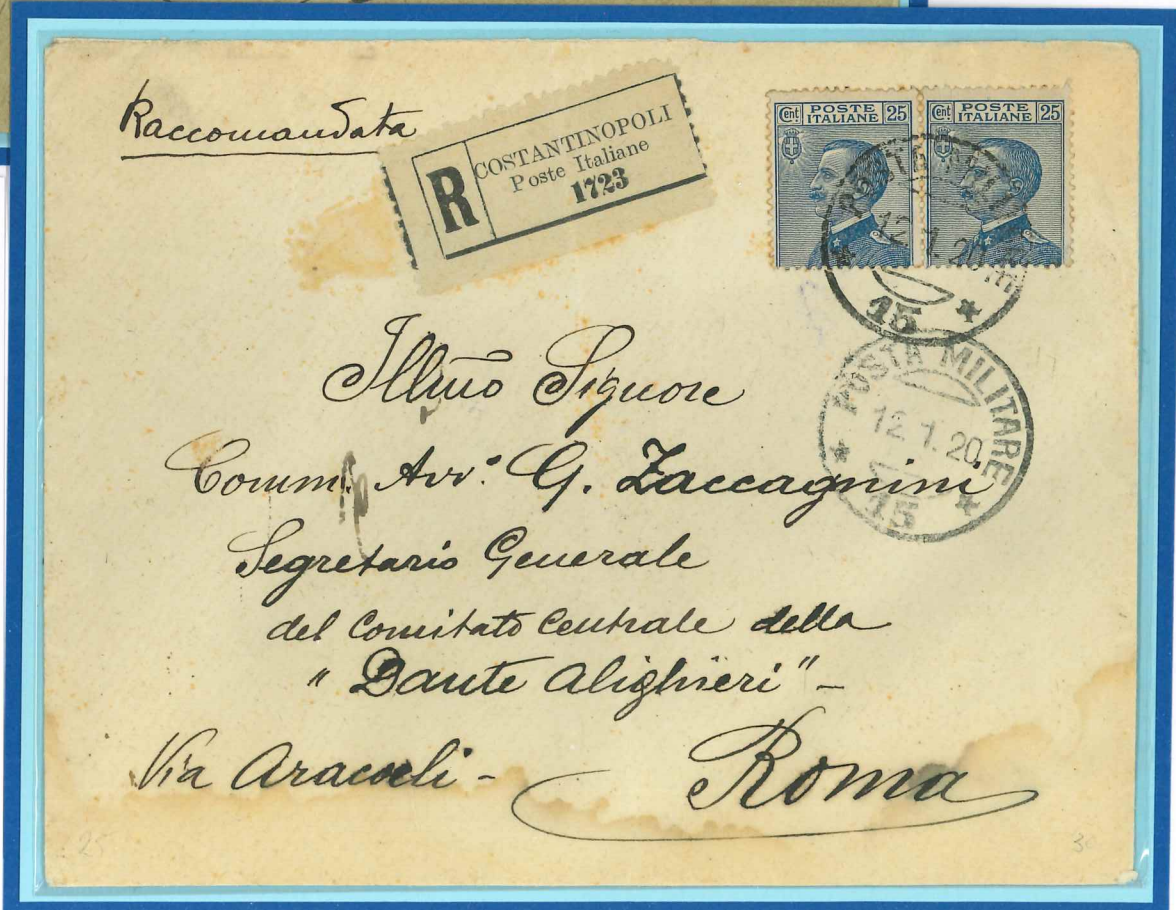 Raccomandata
R
COSTANTINOPOLI
Poste Italiane
1723
Cent POSTE ITALIANE 25
Cent POSTE ITALIANE 25
12.1.20
15
POSTA MILITARE
12.1.20.
15
Illmo Signore
Comm. Avv.° G. Zaccagnini
Segretario Generale
del Comitato Centrale della
"Dante Alighieri" -
Via Aracoeli -
Roma
25
30